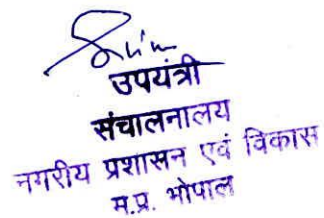 उपयंत्री
संचालनालय
नगरीय प्रशासन एवं विकास
म.प्र. भोपाल